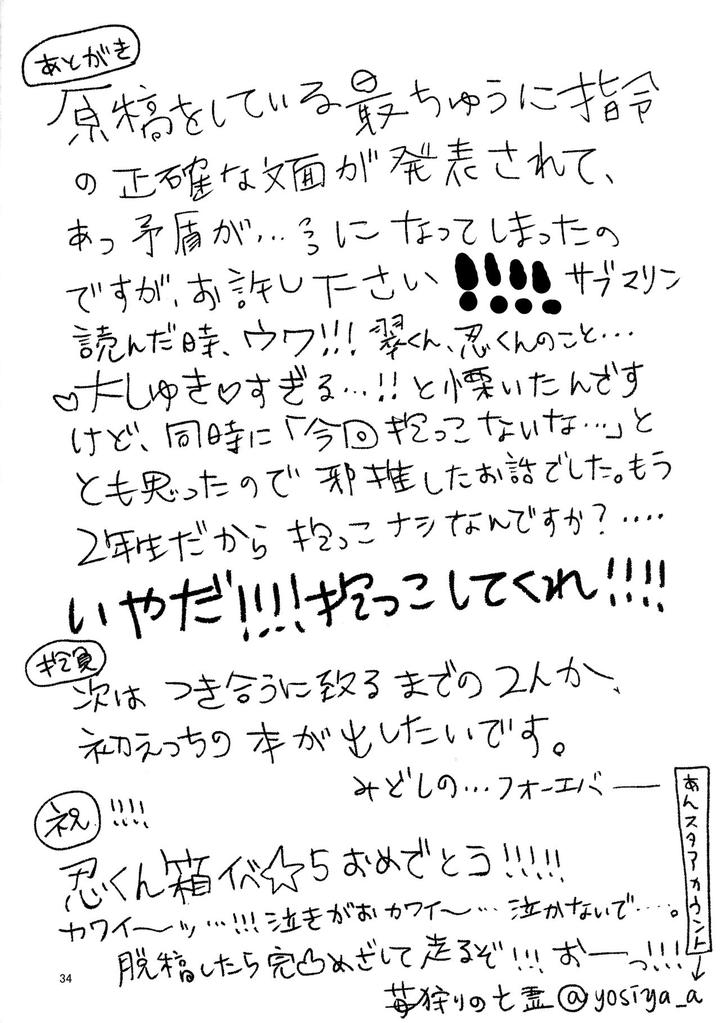 あとがき
原稿をしている最ちゅうに指令
の正確な文面が発表されて、
あっ矛盾が…
になってしまったの
ですが、お許し下さい!!!! サブマリン
読んだ時、ウワ!!! 翠くん、忍くんのこと…
♡大しゅき♡すぎる…!! と慄いたんです
けど、同時に「今回抱っこないな…」と
とも思ったので邪推したお話でした。もう
2年生だから抱っこナシなんですか?‥‥
いやだ!!!!抱っこしてくれ!!!!
抱負
次は つき合うに致るまでの2人か、
初えっちの本が出したいです。
みどしの…フォーエバー
祝 !!!!
忍くん箱イベ☆5おめでとう!!!!!
カワイ〜ッ…!!!泣きがおカワイ〜…泣かないで……。
脱稿したら完凸めざして走るぞ!!! おーっ!!!
あんスタアカウント→
苺狩りの亡霊@yosiya_a
34